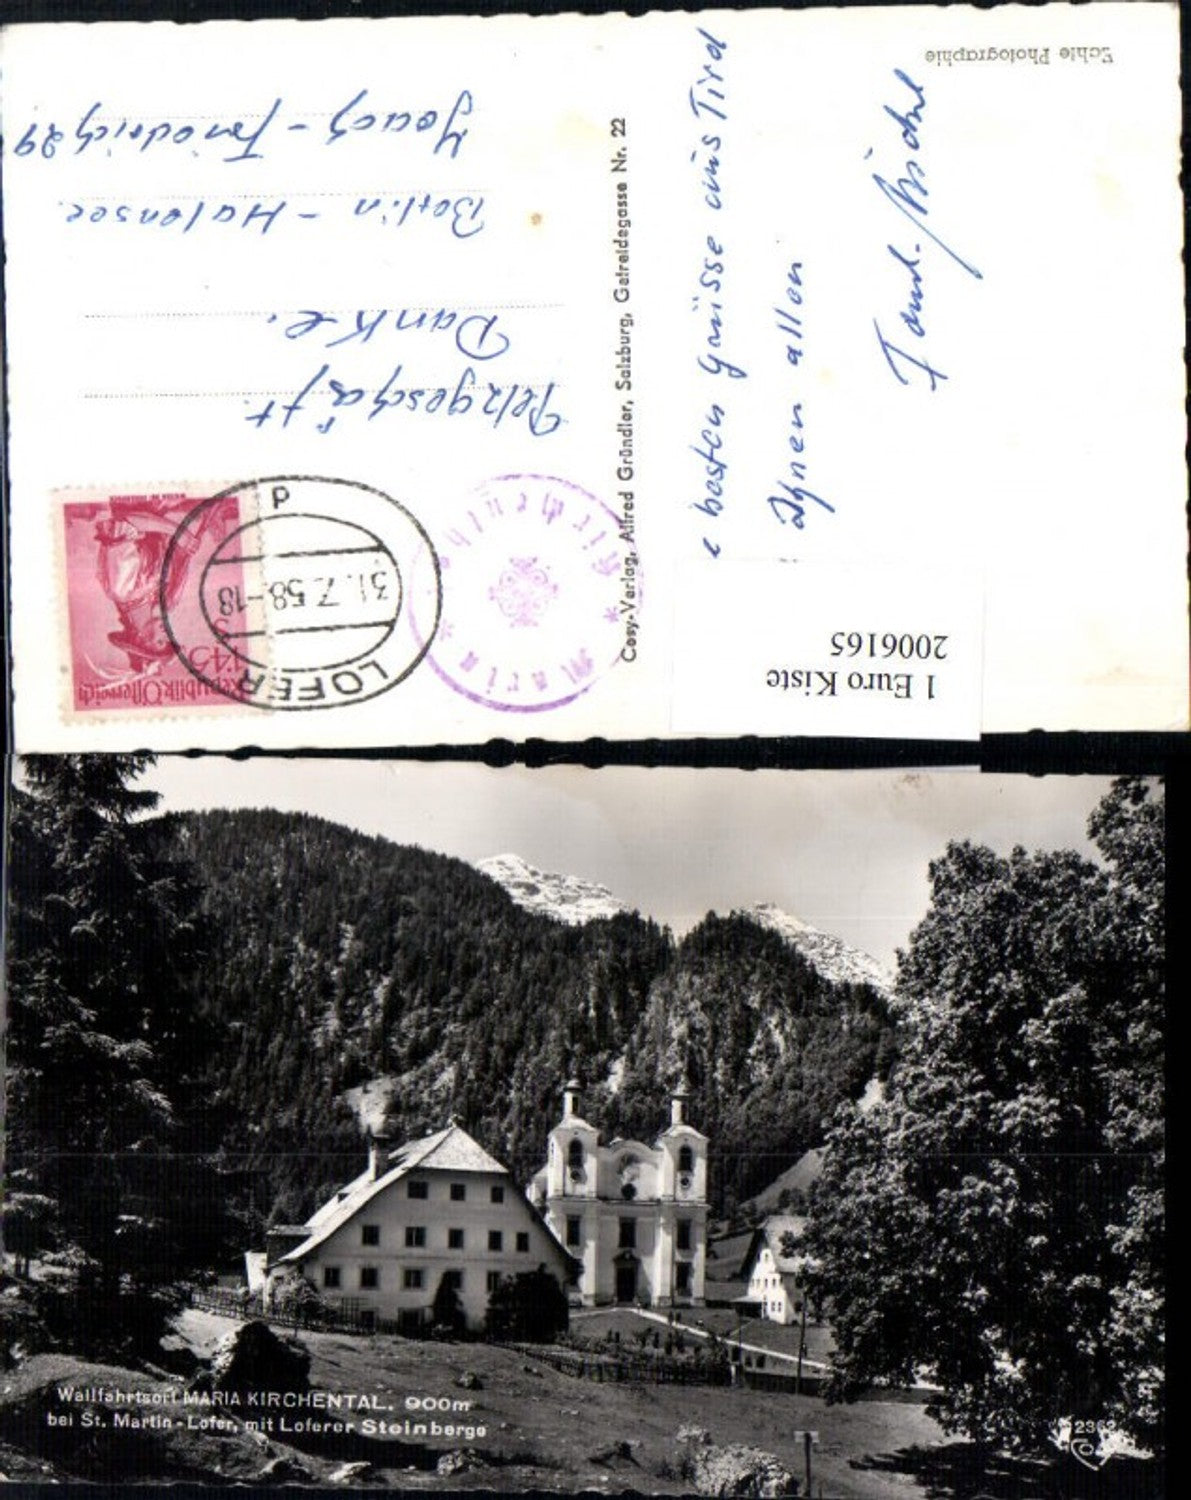 Echte Photographie
e besten Grüsse aus Tirol
Ihnen allen
Fam.
Cosy-Verlag, Alfred Gründler, Salzburg, Getreidegasse Nr. 22
Pelzgeschäft
Dankl.
Berlin - Halensee.
Joach - Friedrich 29
Republik Österreich
1.45
S
LOFER
31.7.58-18
d
* Maria *
Kirchenthal
1 Euro Kiste
2006165
Wallfahrtsort MARIA KIRCHENTAL, 900m
bei St. Martin-Lofer, mit Loferer Steinberge